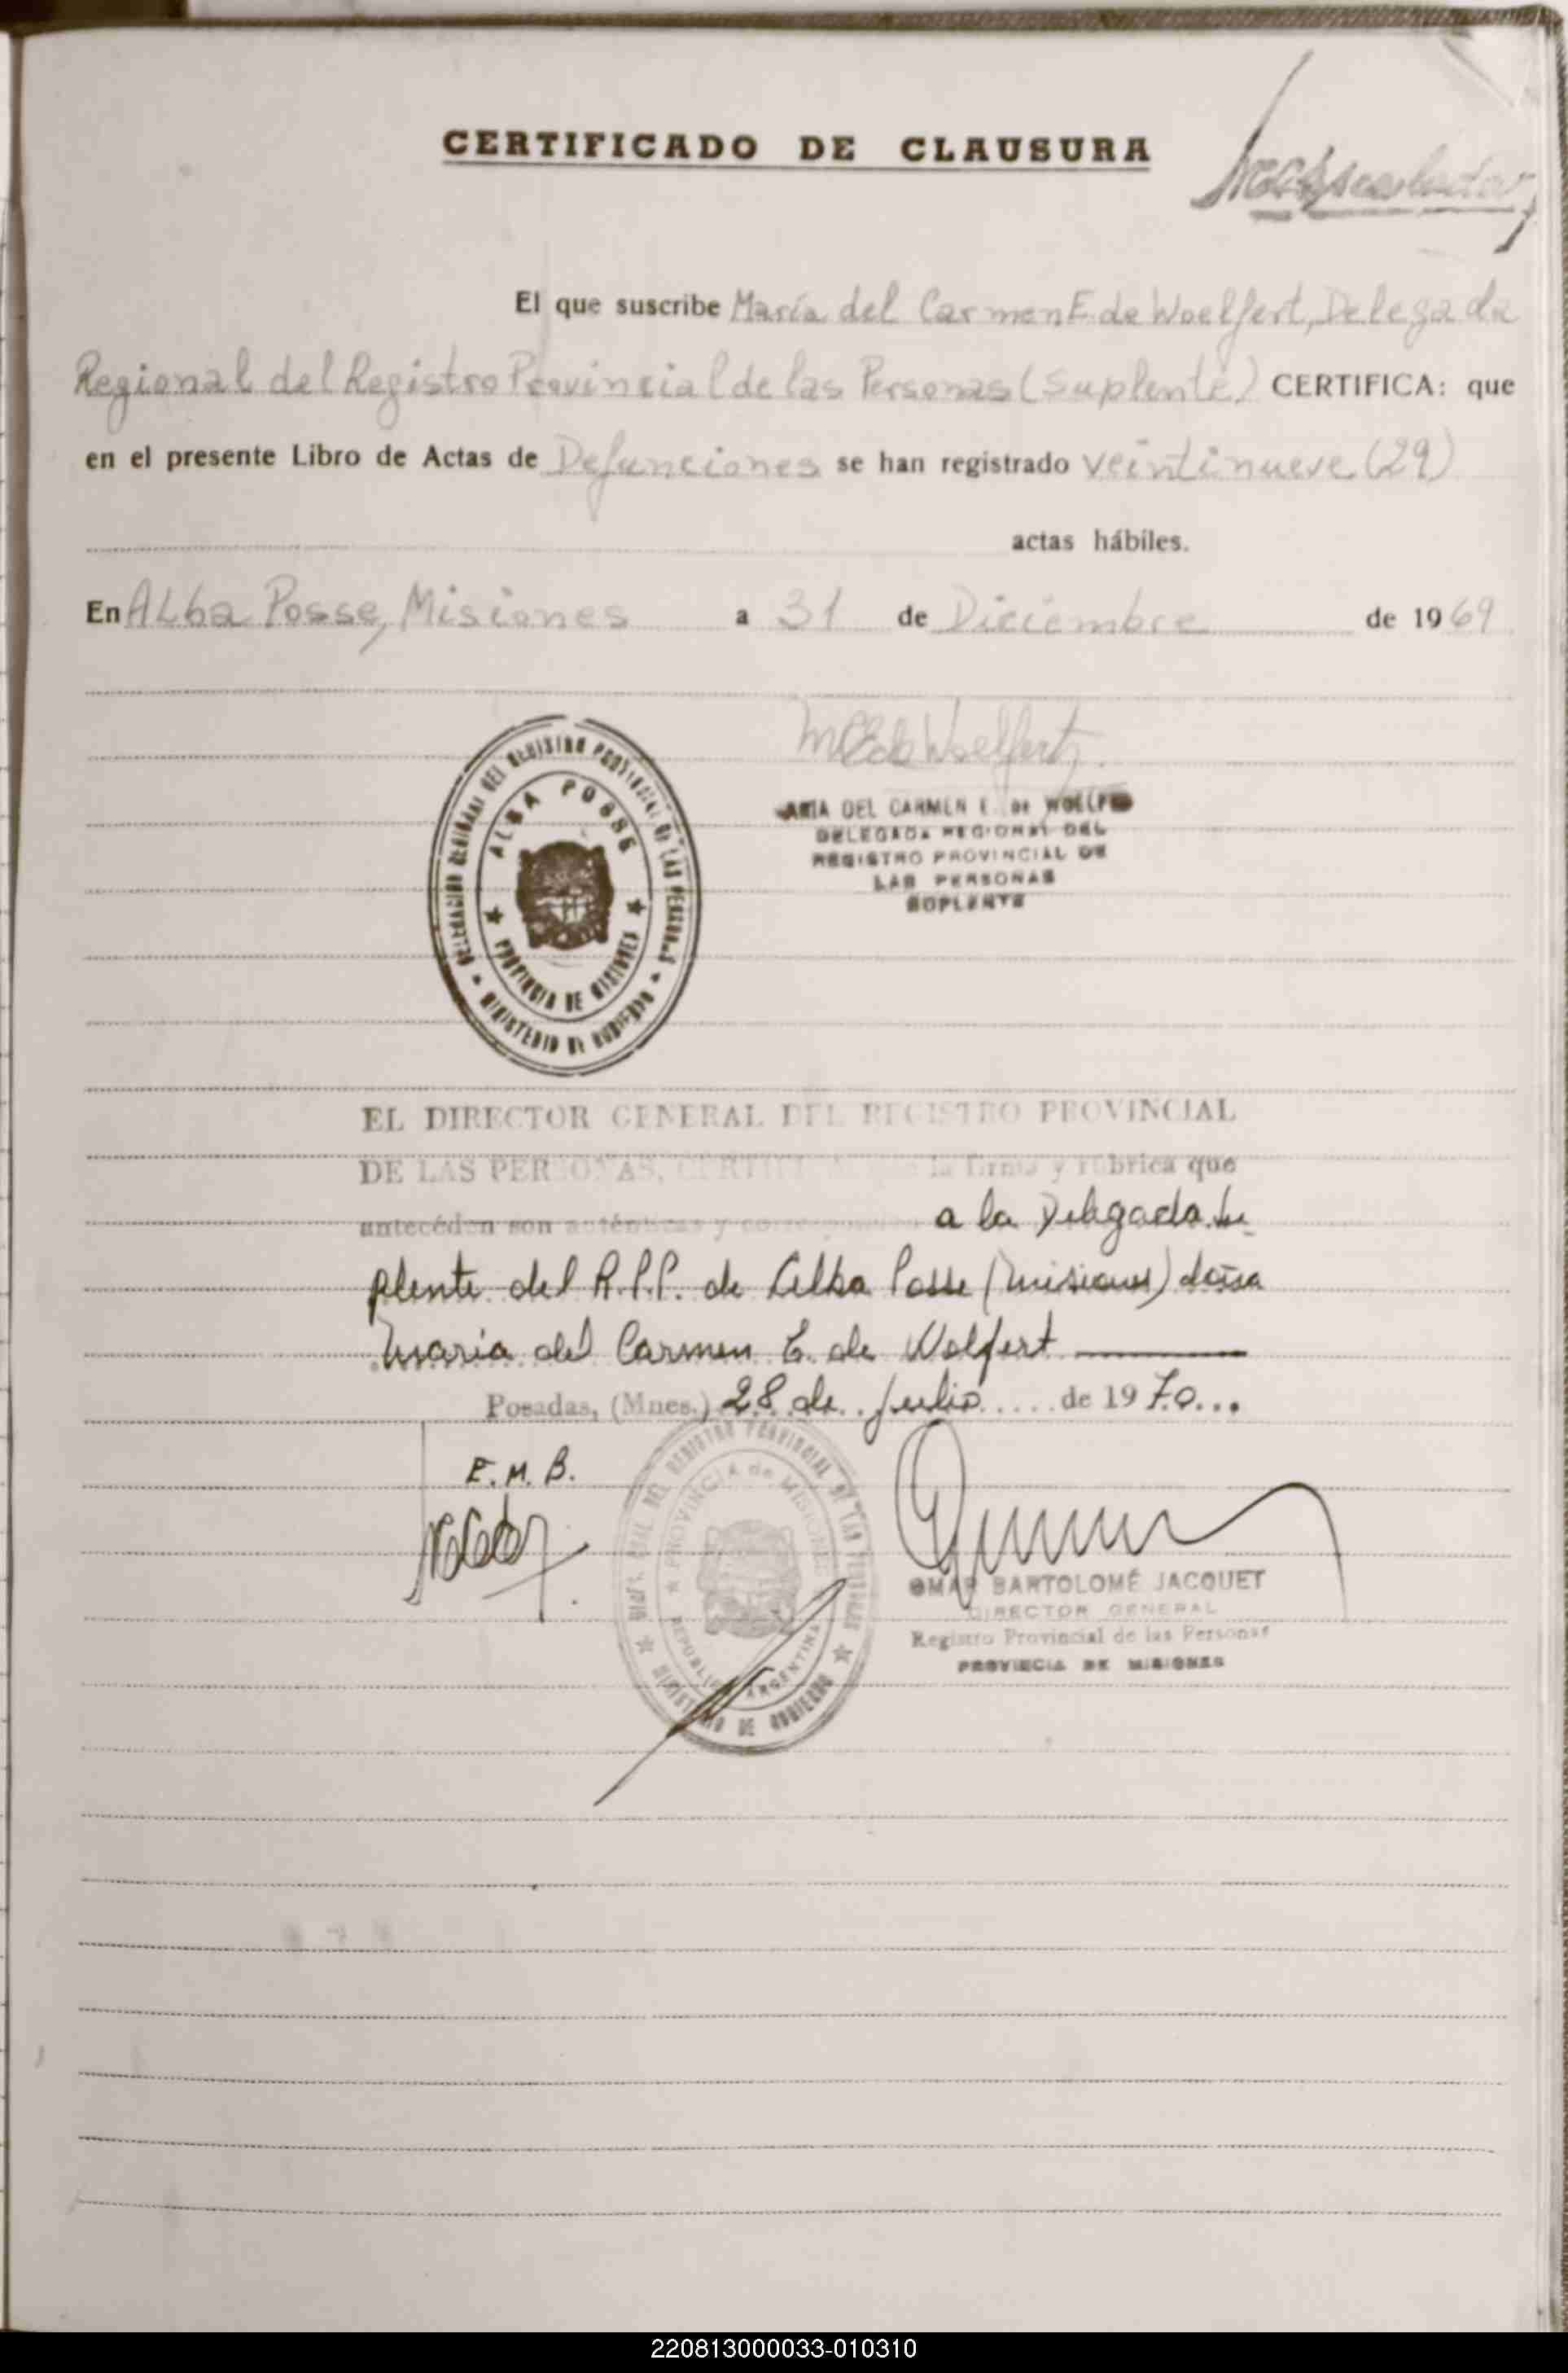 CERTIFICADO DE CLAUSURA
El que suscribe María del Carmen E. de Woelfert, Delegada
Regional del Registro Provincial de las Personas (Suplente) CERTIFICA: que
en el presente Libro de Actas de Defunciones se han registrado veintinueve (29)
actas hábiles.
En Alba Posse, Misiones a 31 de Diciembre de 1969
MCE de Woelfert
ARIA DEL CARMEN E. de WOELFE
DELEGADA REGIONAL DEL
REGISTRO PROVINCIAL DE
LAS PERSONAS
SUPLENTE
DELEGACION REGIONAL DEL REGISTRO PROVINCIAL DE LAS PERSONAS
MINISTERIO DE GOBIERNO
ALBA POSSE
PROVINCIA DE MISIONES
EL DIRECTOR GENERAL DEL REGISTRO PROVINCIAL
DE LAS PERSONAS, la firma y rúbrica que
antecéden son auténticas y a la Delegada Su
plente del R.P.P. de Alba Posse (Misiones) doña
María del Carmen E. de Wolfert
Posadas, (Mnes.) 28 de Julio de 1970...
E. M. B.
DEL REGISTRO PROVINCIAL DE LAS PERSONAS
MINISTERIO DE GOBIERNO
PROVINCIA de MISIONES
REPUBLICA ARGENTINA
OMAR BARTOLOMÉ JACQUET
DIRECTOR GENERAL
Registro Provincial de las Personas
PROVINCIA DE MISIONES
220813000033-010310